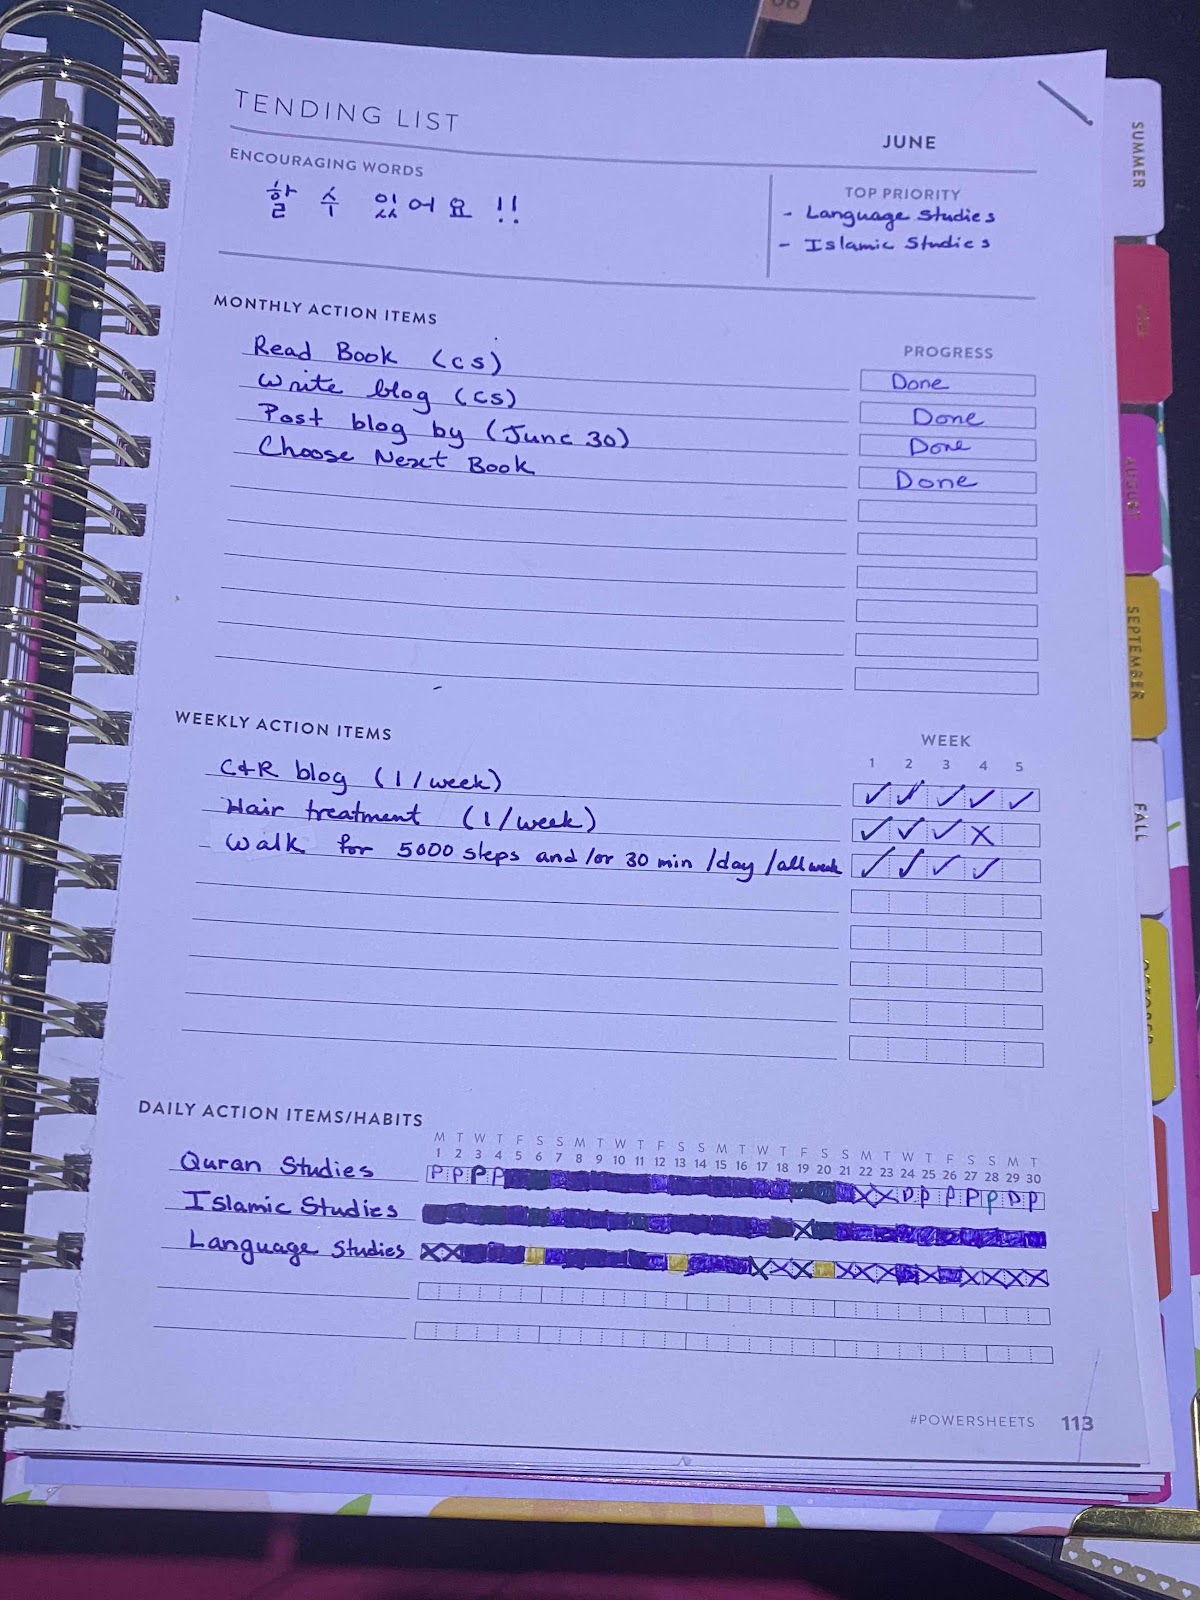 06
TENDING LIST
JUNE
ENCOURAGING WORDS
할 수 있어요 !!
TOP PRIORITY
- Language Studies
- Islamic Studies
MONTHLY ACTION ITEMS
PROGRESS
Read Book (CS)
Done
Write blog (CS)
Done
Post blog by (June 30)
Done
Choose Next Book
Done
WEEKLY ACTION ITEMS
WEEK
1 2 3 4 5
C&R blog (1/week)
✓ ✓ ✓ ✓ ✓
Hair treatment (1/week)
✓ ✓ ✓ X
Walk for 5000 steps and/or 30 min /day /all week
✓ ✓ ✓ ✓
DAILY ACTION ITEMS/HABITS
M T W T F S S M T W T F S S M T W T F S S M T W T F S S M T
1 2 3 4 5 6 7 8 9 10 11 12 13 14 15 16 17 18 19 20 21 22 23 24 25 26 27 28 29 30
Quran Studies
P P P P X X P P P P P P P
Islamic Studies
X
Language Studies
X X X X X X X X X X X X X
#POWERSHEETS 113
SUMMER
AUGUST
SEPTEMBER
FALL
OCTOBER